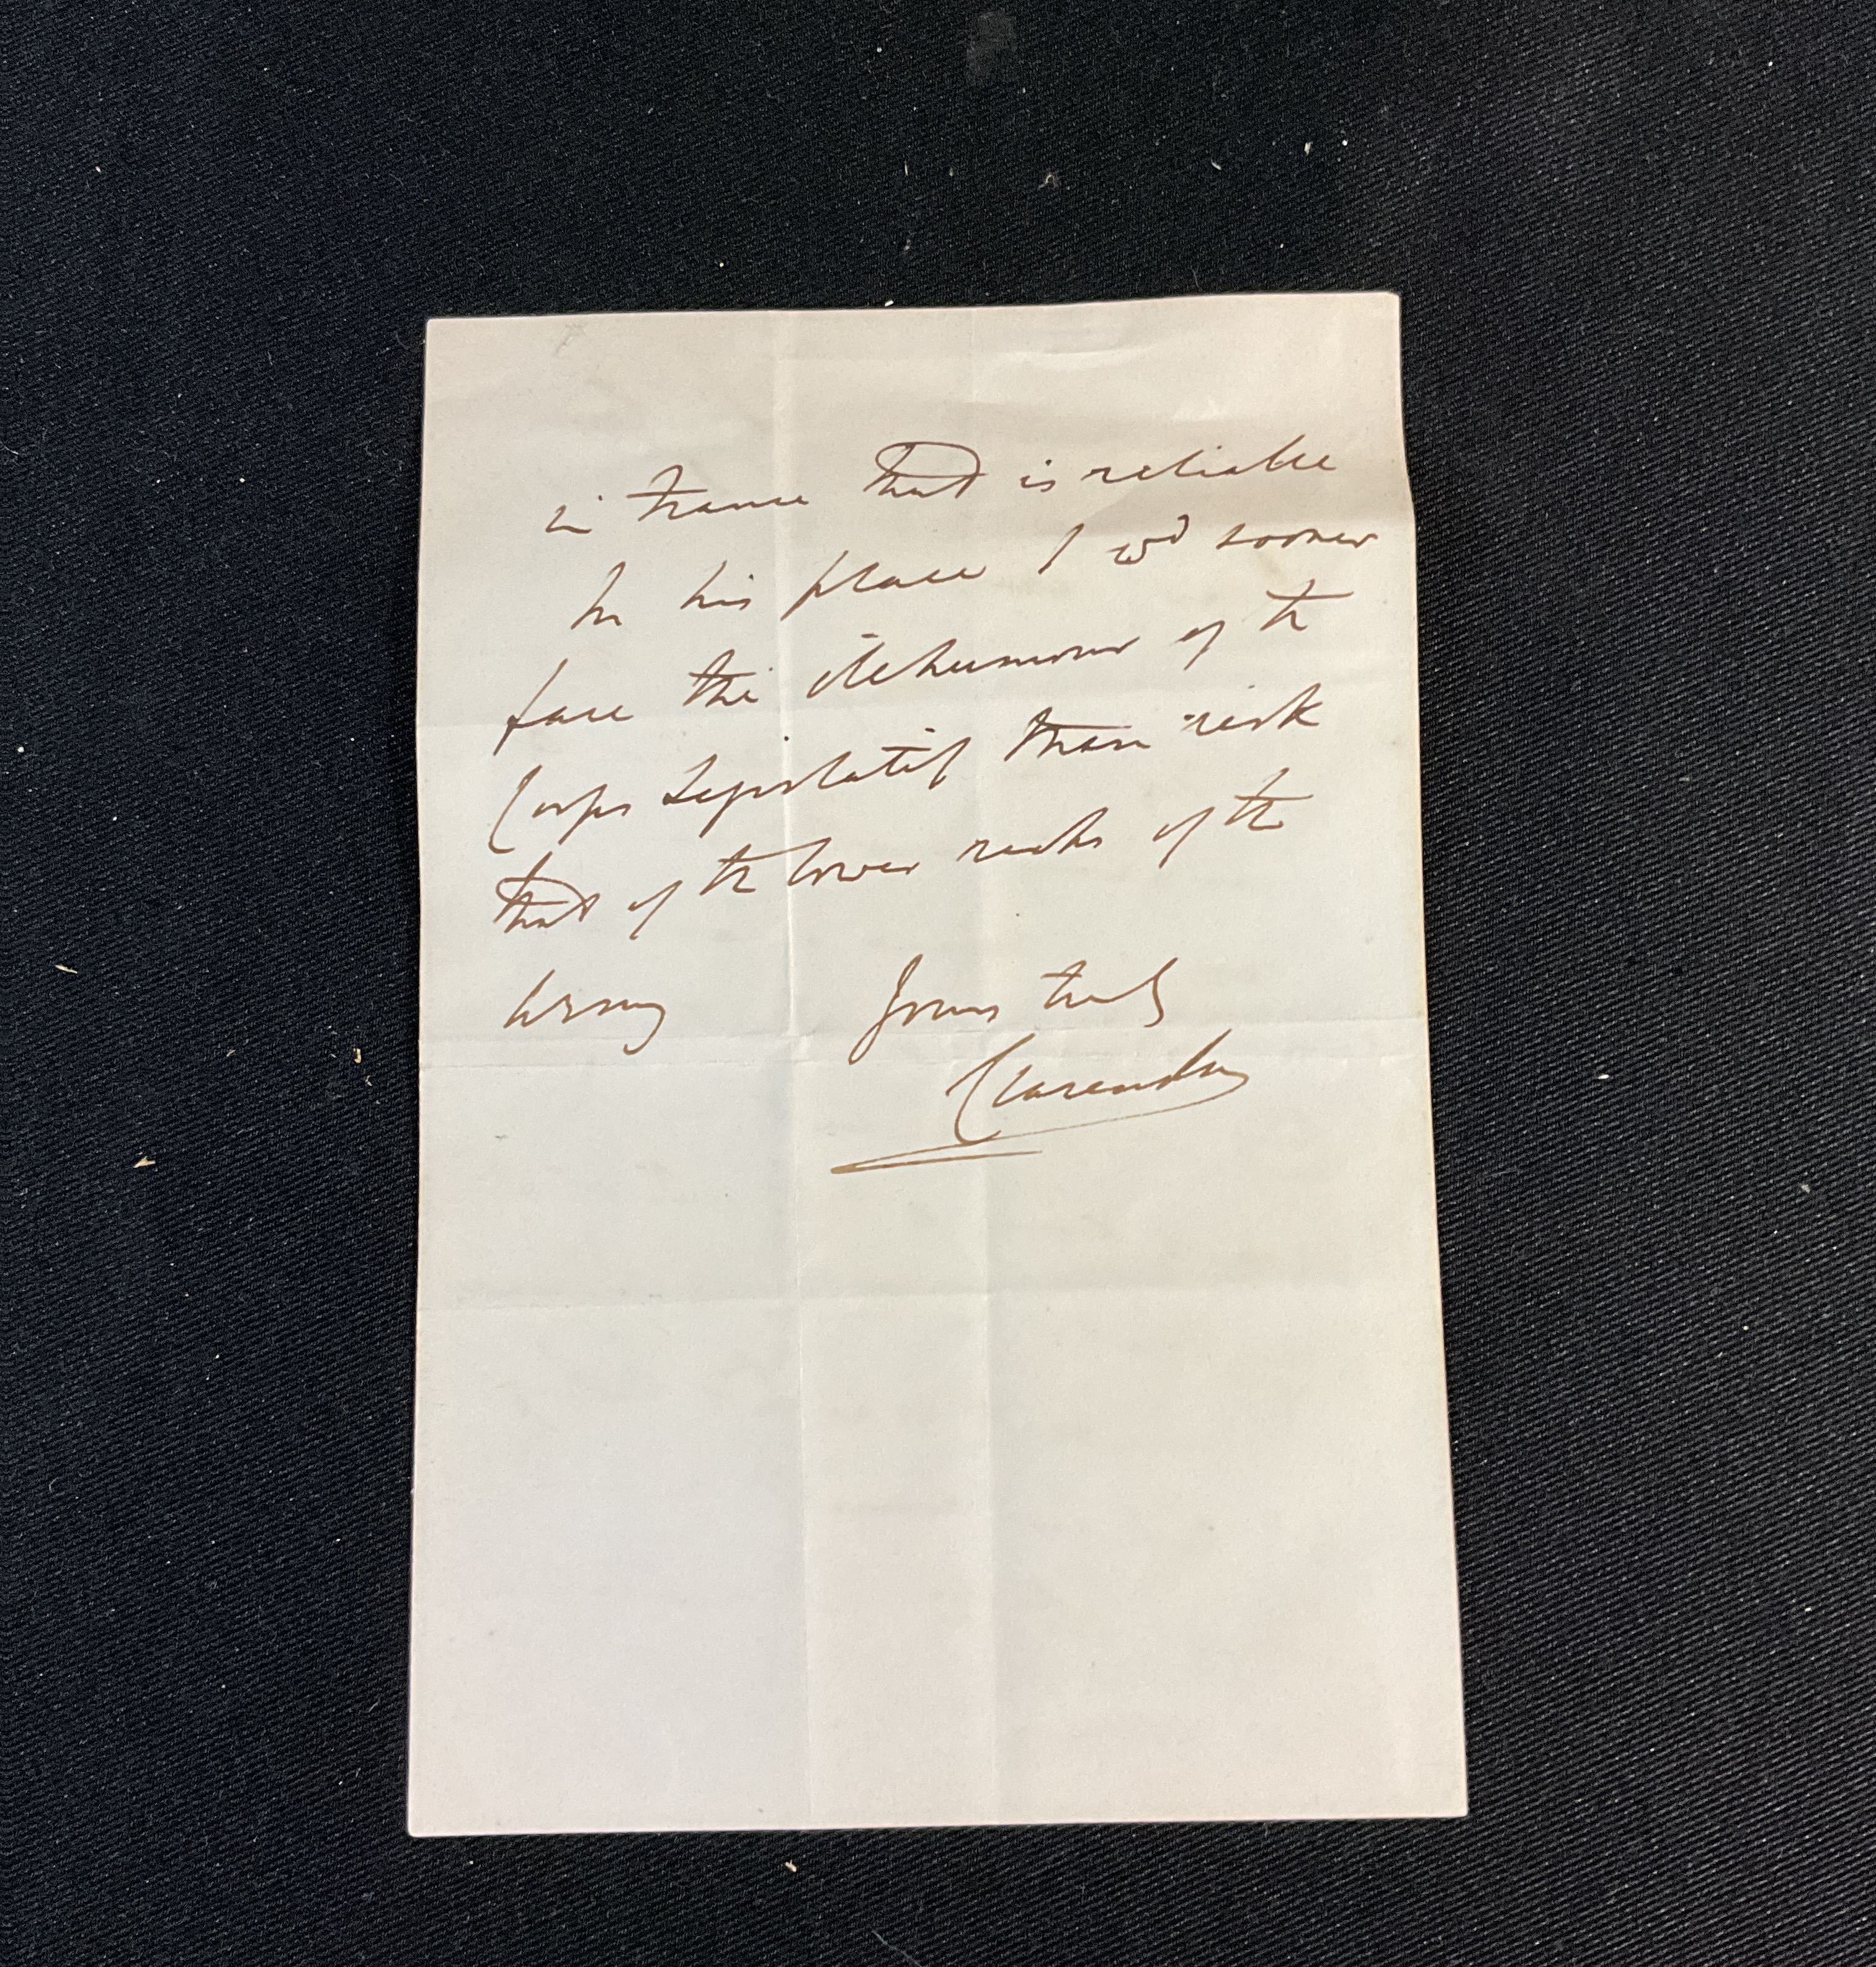 in France that is reliable
In his place I wd sooner
face the ill humour of the
Corps Legislatif than risk
that of the lower ranks of the
Army Yours truly
Clarendon